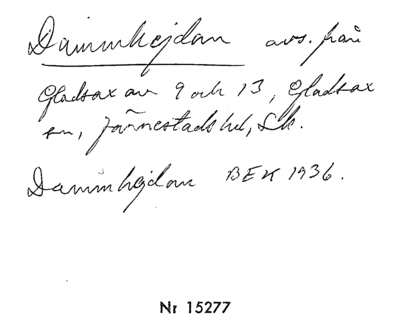 Dammhejdan avs. från
Gladsax nr 9 och 13, Gladsax
sn, Järrestads hd, Sk.
Dammhejdan BEK 1936.
Nr 15277